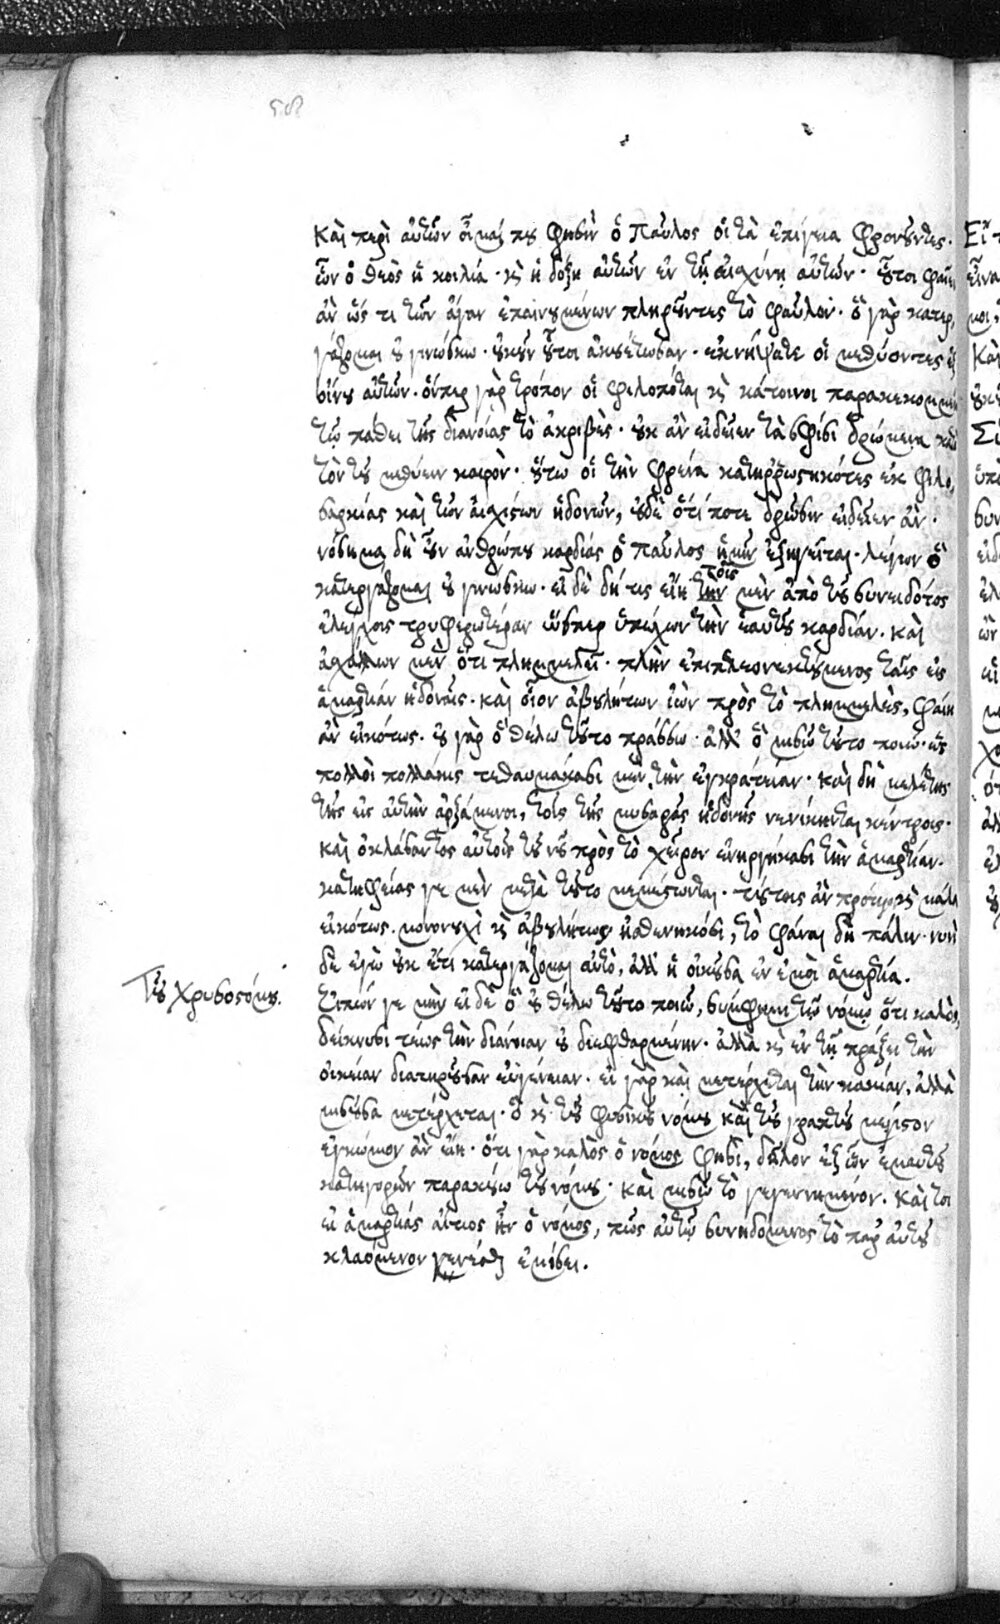 καὶ περὶ αὐτῶν οἶμαί που φησὶν ὁ Παῦλος οἱ τὰ ἐπίγεια φρονοῦντες.
ὧν ὁ θεὸς ἡ κοιλία· κ̀ ἡ δόξα αὐτῶν ἐν τῇ αἰσχύνῃ αὐτῶν· οὗτοι φαῖεν
ἂν ὥς τι τῶν ἄγαν ἐπαινουμένων πληροῦντες τὸ φαῦλον· ὃ γὰρ κατερ,
γάζομαι οὐ γινώσκω· οὐκοῦν οὗτοι ἀκουέτωσαν· ἐκνήψατε οἱ μεθύοντες ἐξ
οἴνου αὐτῶν· ὅνπερ γὰρ τρόπον οἱ φιλοπόται κ̀ κάτοινοι παρακεκομμένοι
τῷ πάθει τῆς διανοίας τὸ ἀκριβὲς· οὐκ ἂν εἰδεῖεν τὰ σφίσι δρώμενα κατὰ
τὸν τοῦ μεθύειν καιρὸν· οὕτω οἱ τὴν φρένα κατηρρωστηκότες ἐκ φιλο,
σαρκίας καὶ τῶν αἰσχίστων ἡδονῶν, οὐδὲ ὅτί ποτε δρῶσιν εἰδεῖεν ἂν·
νόσημα δὴ οὖν ἀνθρώπου καρδίας ὁ παῦλος ἡμῖν ἐξηγεῖται· λέγων ὃ
κατεργάζομαι οὐ γινώσκω· εἰ δὲ δή τις εἴη τοῖς τὴν μὲν ἀπὸ τοῦ συνειδότος
ἐλέγχοις τρυφερωτέραν ὥσπερ ὑπέχων τὴν ἑαυτοῦ καρδίαν· καὶ
ἀσχάλλων μὲν ὅτι πλημμελεῖ· πλὴν ἐπιπλεονεκτούμενος ταῖς εἰς
ἁμαρτίαν ἡδοναῖς· καὶ οἷον ἀβουλήτων ἰὼν πρὸς τὸ πλημμελὲς, φαίη
ἂν εἰκότως· οὐ γὰρ ὃ θέλω τοῦτο πράσσω· ἀλλ' ὃ μισῶ τοῦτο ποιῶ· ὡς
πολλοὶ πολλάκις τεθαυμάκασι μὲν τὴν ἐγκράτειαν· καὶ δὴ μελέτης
τῆς εἰς αὐτὴν ἀρξάμενοι, τοῖς τῆς μυσαρᾶς ἡδονῆς νενίκηνται κέντροις·
καὶ ὀκλάσαντος αὐτοῖς τοῦ νοῦ πρὸς τὸ χεῖρον ἐνηργήκασι τὴν ἁμαρτίαν.
κατηφείας γε μὴν μετὰ τοῦτο μεμέστωνται· τούτοις ἂν πρέποι κ̀ μάλα
εἰκότως· μονονουχὶ κ̀ ἀβουλήτως ἠσθενηκόσι, τὸ φάναι δὴ πάλιν· νυνὶ
δὲ ἐγὼ οὐκ ἔτι κατεργάζομαι αὐτὸ, ἀλλ' ἡ οἰκοῦσα ἐν ἐμοὶ ἁμαρτία.
Τοῦ χρυσοστόμου.
εἰπών γε μὴν εἰ δὲ ὃ οὐ θέλω τοῦτο ποιῶ, σύμφημι τῷ νόμῳ ὅτι καλὸς,
δείκνυσι τέως τὴν διάνοιαν οὐ διεφθαρμένην· ἀλλὰ κ̀ ἐν τῇ πράξει τὴν
οἰκείαν διατηροῦσαν εὐγένειαν· εἰ γὰρ καὶ μετέρχεται τὴν κακίαν, ἀλλὰ
μισοῦσα μετέρχεται· ὃ κ̀ τοῦ φυσικοῦ νόμου καὶ τοῦ γραπτοῦ μέγιστον
ἐγκώμιον ἂν εἴη· ὅτι γὰρ καλὸς ὁ νόμος φησὶ, δῆλον ἐξ ὧν ἐμαυτοῦ
κατηγορῶν παρακούω τοῦ νόμου· καὶ μισῶ τὸ γεγενημένον. καί τοι
εἰ ἁμαρτίας αἴτιος ἦν ὁ νόμος, πῶς αὐτῷ συνηδόμενος τὸ παρ' αὐτοῦ
γενέσθαι ἐμίσει.